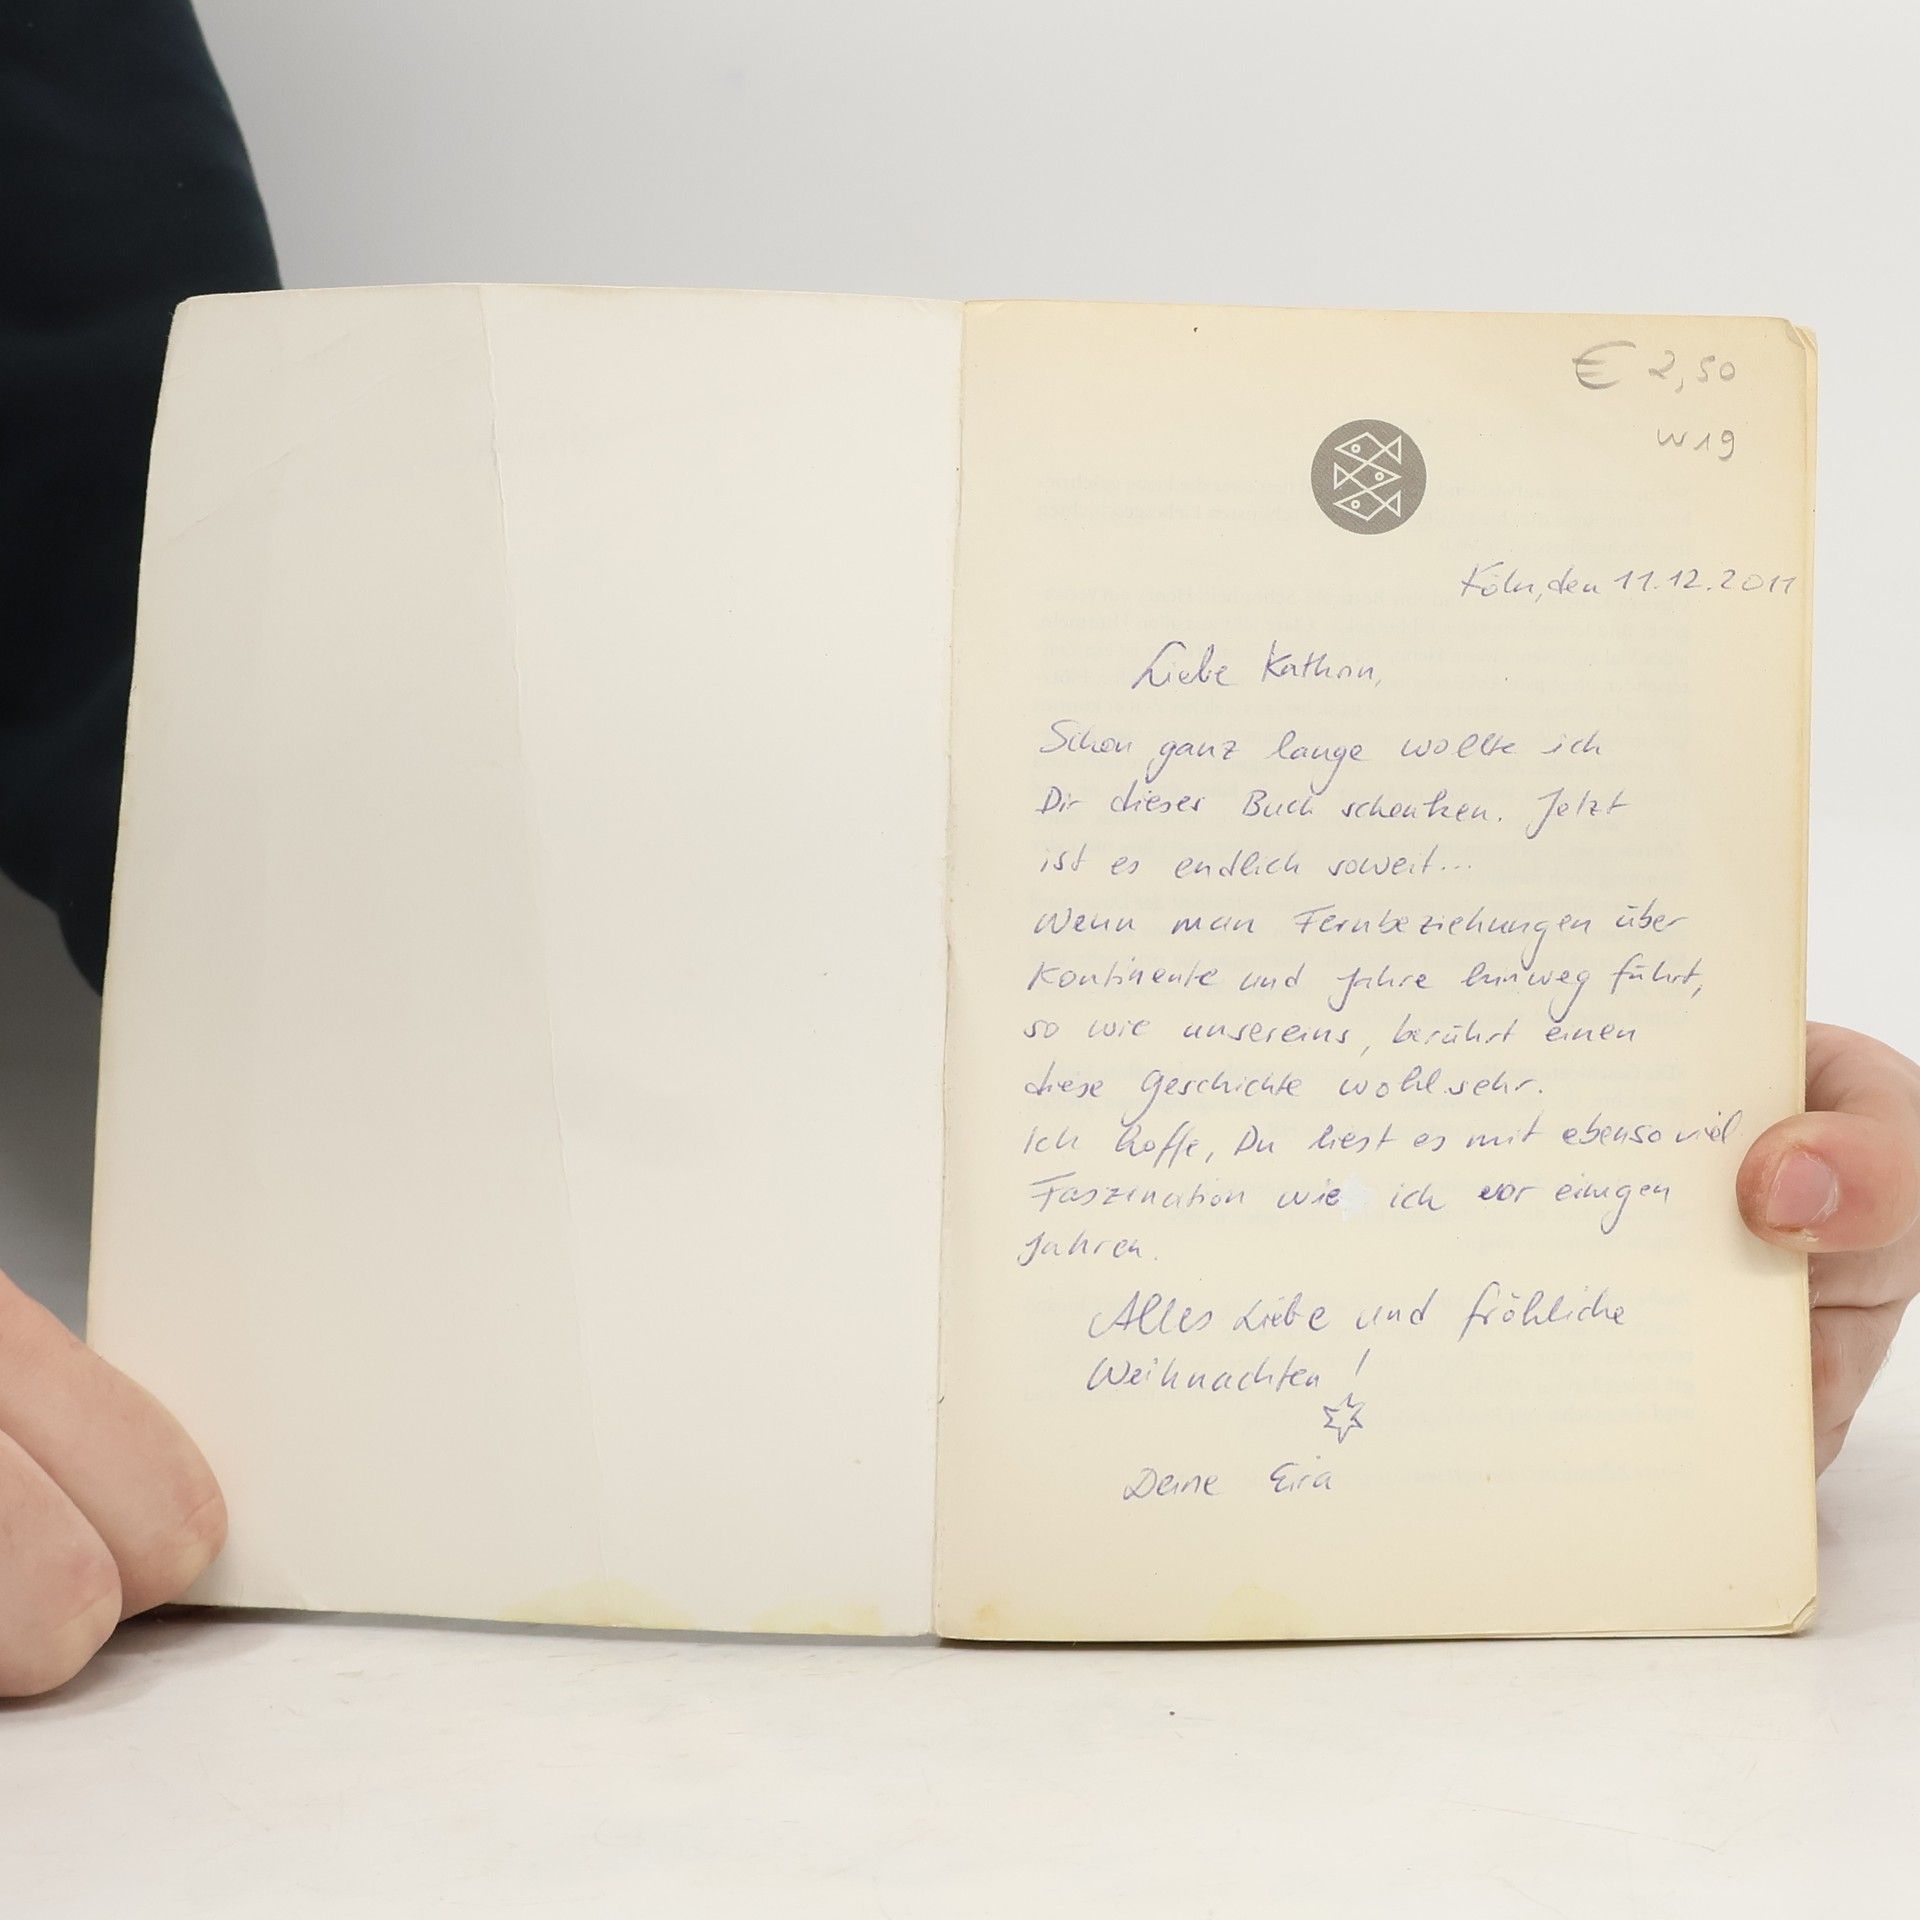 € 2,50
w19
Köln, den 11.12.2011
Liebe Kathrin,
Schon ganz lange wollte ich
Dir dieses Buch schenken. Jetzt
ist es endlich soweit...
Wenn man Fernbeziehungen über
Kontinente und Jahre hinweg führt,
so wie unsereins, berührt einen
diese Geschichte wohl sehr.
Ich hoffe, Du liest es mit ebenso viel
Faszination wie ich vor einigen
Jahren.
Alles Liebe und fröhliche
Weihnachten!
Deine Eira